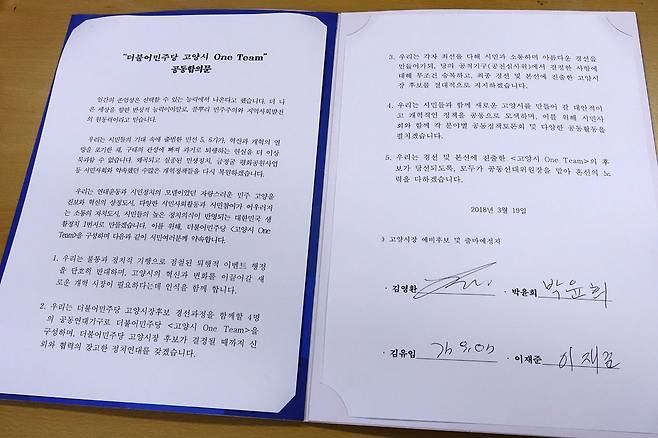 "더불어민주당 고양시 One Team"
공동합의문
인간의 존엄성은 선택할 수 있는 능력에서 나온다고 했습니다. 더 나
은 세상을 향한 반성적 능력이야말로, 풀뿌리 민주주의와 지역사회발전
의 원동력이라고 믿습니다.
우리는 시민들의 기대 속에 출범한 민선 5, 6기가, 혁신과 개혁의 열
망을 포기한 채, 구태의 관성에 빠져 과거로 퇴행하는 현실을 더 이상
묵과할 수 없습니다. 왜곡되고 실종된 민생정치, 금정굴 평화공원사업
등 시민사회와 약속했던 수많은 개혁정책들을 다시 복원하겠습니다.
우리는 연대운동과 시민정치의 모델이었던 자랑스러운 민주 고양을
진보와 혁신의 상징도시, 다양한 시민사회활동과 시민참여가 어우러지
는 소통의 자치도시, 시민들의 높은 정치의식이 반영되는 대한민국 생
활정치 1번지로 만들겠습니다. 이를 위해, 더불어민주당 <고양시 One
Team>을 구성하며 다음과 같이 시민여러분께 약속합니다.
1. 우리는 불통과 정치적 기행으로 점철된 퇴행적 이벤트 행정
을 단호히 반대하며, 고양시의 혁신과 변화를 이끌어갈 새
로운 개혁 시장이 필요하다는데 인식을 함께 합니다.
2. 우리는 더불어민주당 고양시장후보 경선과정을 함께할 4명
의 공동연대기구로 더불어민주당 <고양시 One Team>을
구성하며, 더불어민주당 고양시장 후보가 결정될 때까지 신
뢰와 협력의 강고한 정치연대를 갖겠습니다.
3. 우리는 각자 최선을 다해 시민과 소통하며 아름다운 경선을
만들어가되, 당의 공적기구(공천심사위)에서 결정한 사항에
대해 무조건 승복하고, 최종 경선 및 본선에 진출한 고양시
장 후보를 절대적으로 지지하겠습니다.
4. 우리는 시민들과 함께 새로운 고양시를 만들어 갈 대안적이
고 개혁적인 정책을 공동으로 모색하며, 이를 위해 시민사
회와 함께 각 분야별 공동정책토론회 및 다양한 공동활동을
펼치겠습니다.
5. 우리는 경선 및 본선에 진출한 <고양시 One Team>의 후
보가 당선되도록, 모두가 공동선대위원장을 맡아 혼신의 노
력을 다하겠습니다.
2018년 3월 19일
》 고양시장 예비후보 및 출마예정자
· 김영환 · 박윤희 박윤희
· 김유임 · 이재준 이재준